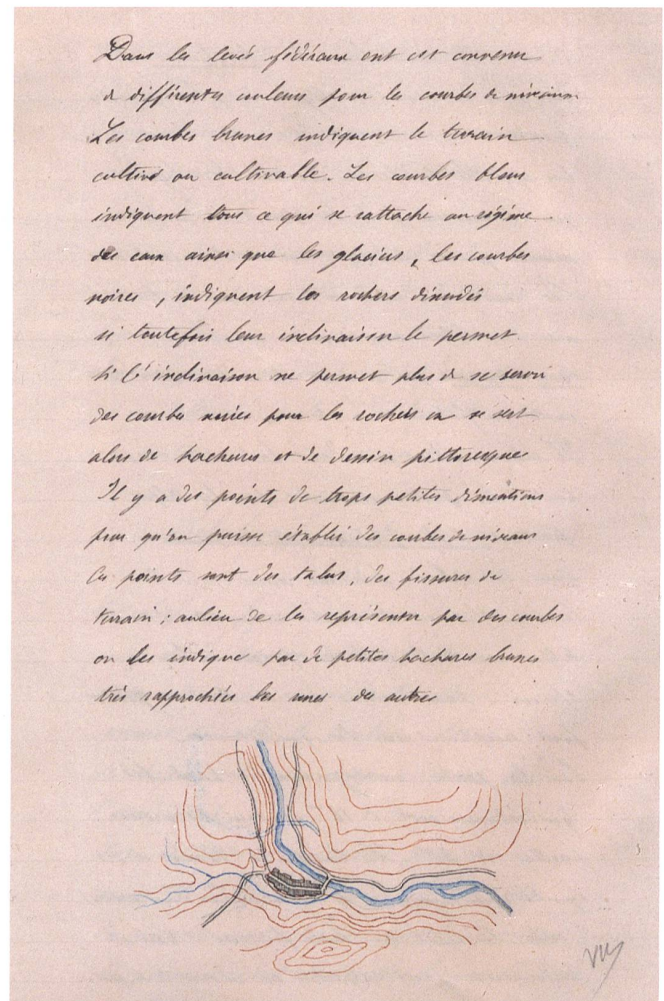 Dans les levés fédéraux ont est convenu
de différentes couleurs pour les courbes de niveaux
Les courbes brunes indiquent le terrain
cultivé ou cultivable. Les courbes bleus
indiquent tous ce qui se rattache au régime
des eaux ainsi que les glaciers, les courbes
noires, indiquent les rochers dénudés
si toutefois leur inclinaison le permet
Si l'inclinaison ne permet plus de se servir
des courbes noires pour les rochers on se sert
alors de hachures et de dessin pittoresque
Il y a des points de trops petites dimentions
pour qu'on puisse établir des courbes de niveaux
Ces points sont des talus, des fissures de
terrain ; aulieu de les représenter par des courbes
on les indique par de petites hachures brunes
très rapprochées les unes des autres